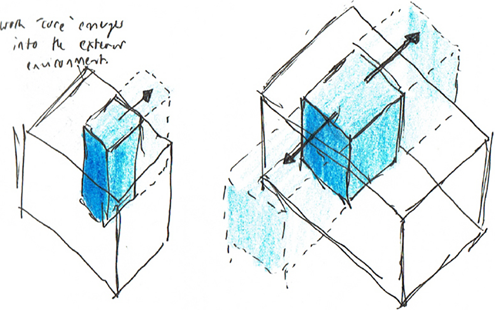 work "core" emerges
into the exterior
environment.